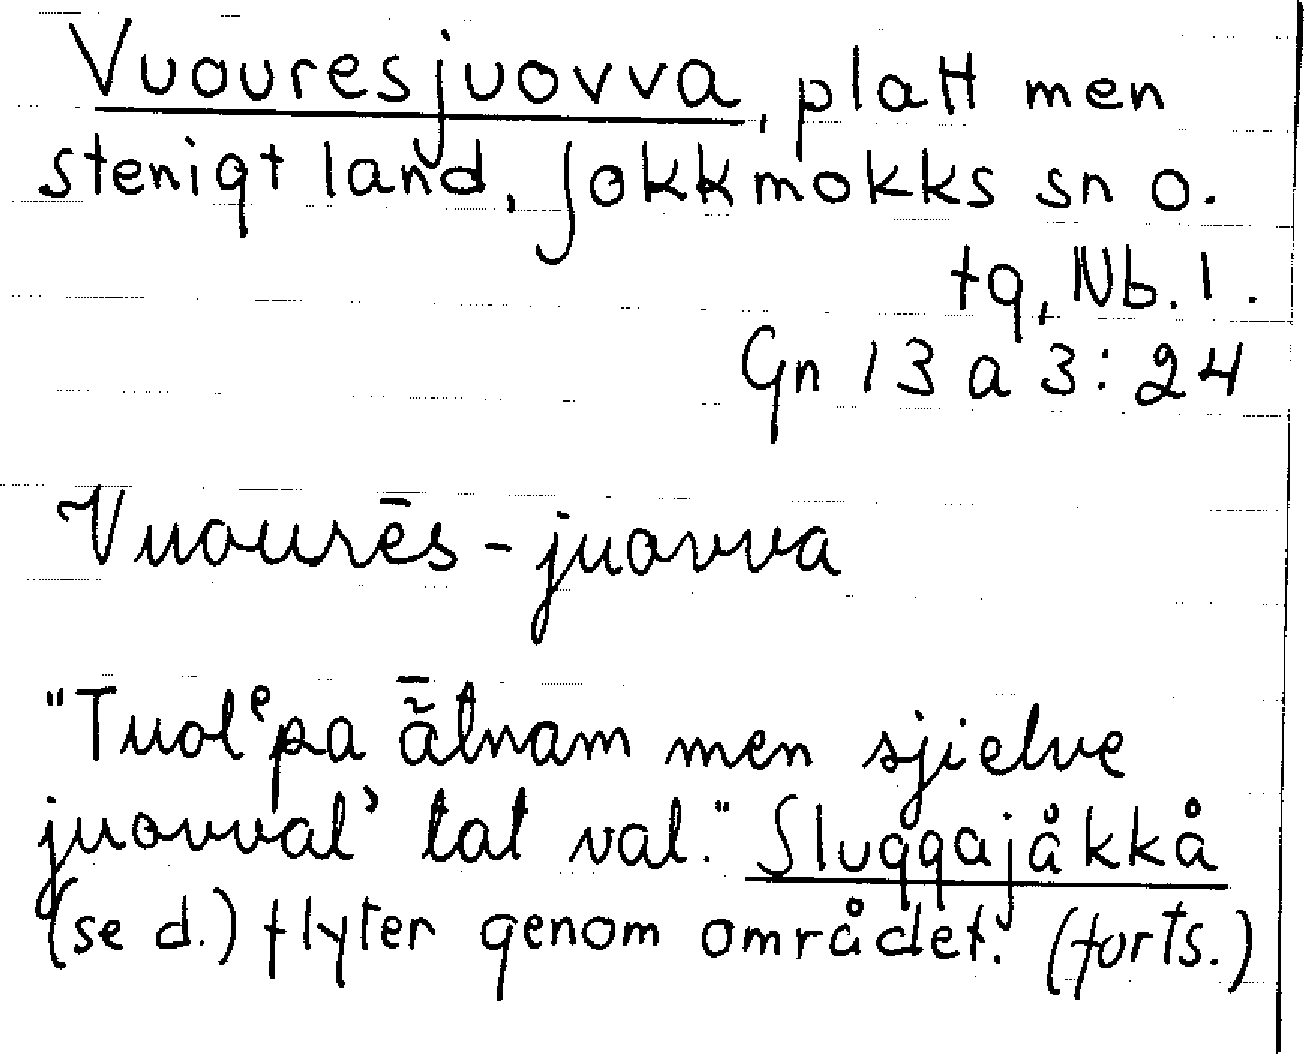 Vuouresjuovva, platt men
stenigt land, Jokkmokks sn o.
tg, Nb. l.
Gn 13 a 3:24
Vuourēs-juovva
"Tuolᵉpa ā̆tnam men sjielve
juovval' tat val." Sluggajåkkå
(se d.) flyter genom området. (forts.)